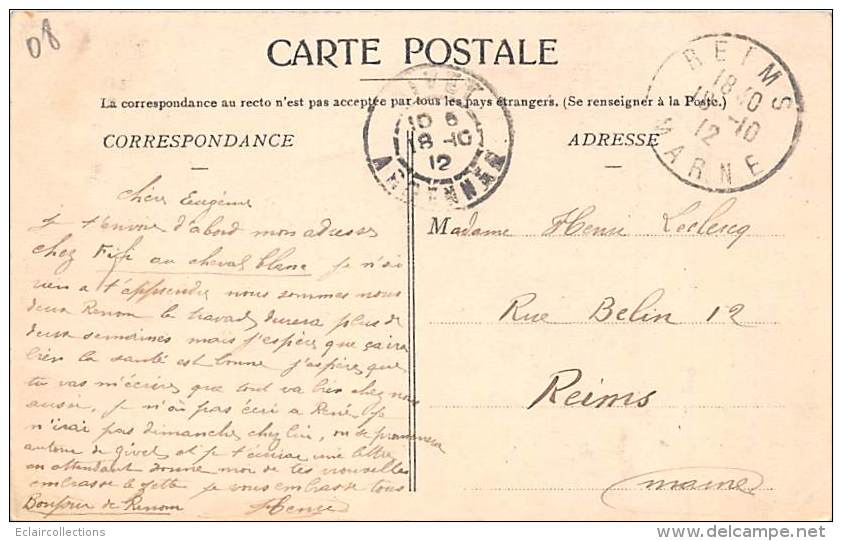 08
CARTE POSTALE
La correspondance au recto n'est pas acceptée par tous les pays étrangers. (Se renseigner à la Poste.)
CORRESPONDANCE
ADRESSE
REIMS
18 10
12
MARNE
10
18-10
12
ARDENNES
chère Eugénie
je t'envoie d'abord mon adresse
chez Fifi au cheval blanc je n'ai
rien a t'apprendre nous sommes nous
deux Renom le travail durera plus de
deux semaines mais j'espère que ça ira
bien la santé est bonne j'espère que
tu vas m'écrire que tout va bien chez nous
aussi, je n'ai pas écri a René, je
n'irai pas dimanche chez lui, on se promenera
autour de givet et je t'écrirai une lettre
en attendant donne moi de tes nouvelles
embrasse je vous embrasse tous
Bonjour de Renom Henri
Madame Henri Leclercq
Rue Belin 12
Reims
marne
Eclaircollections
delcampe.net